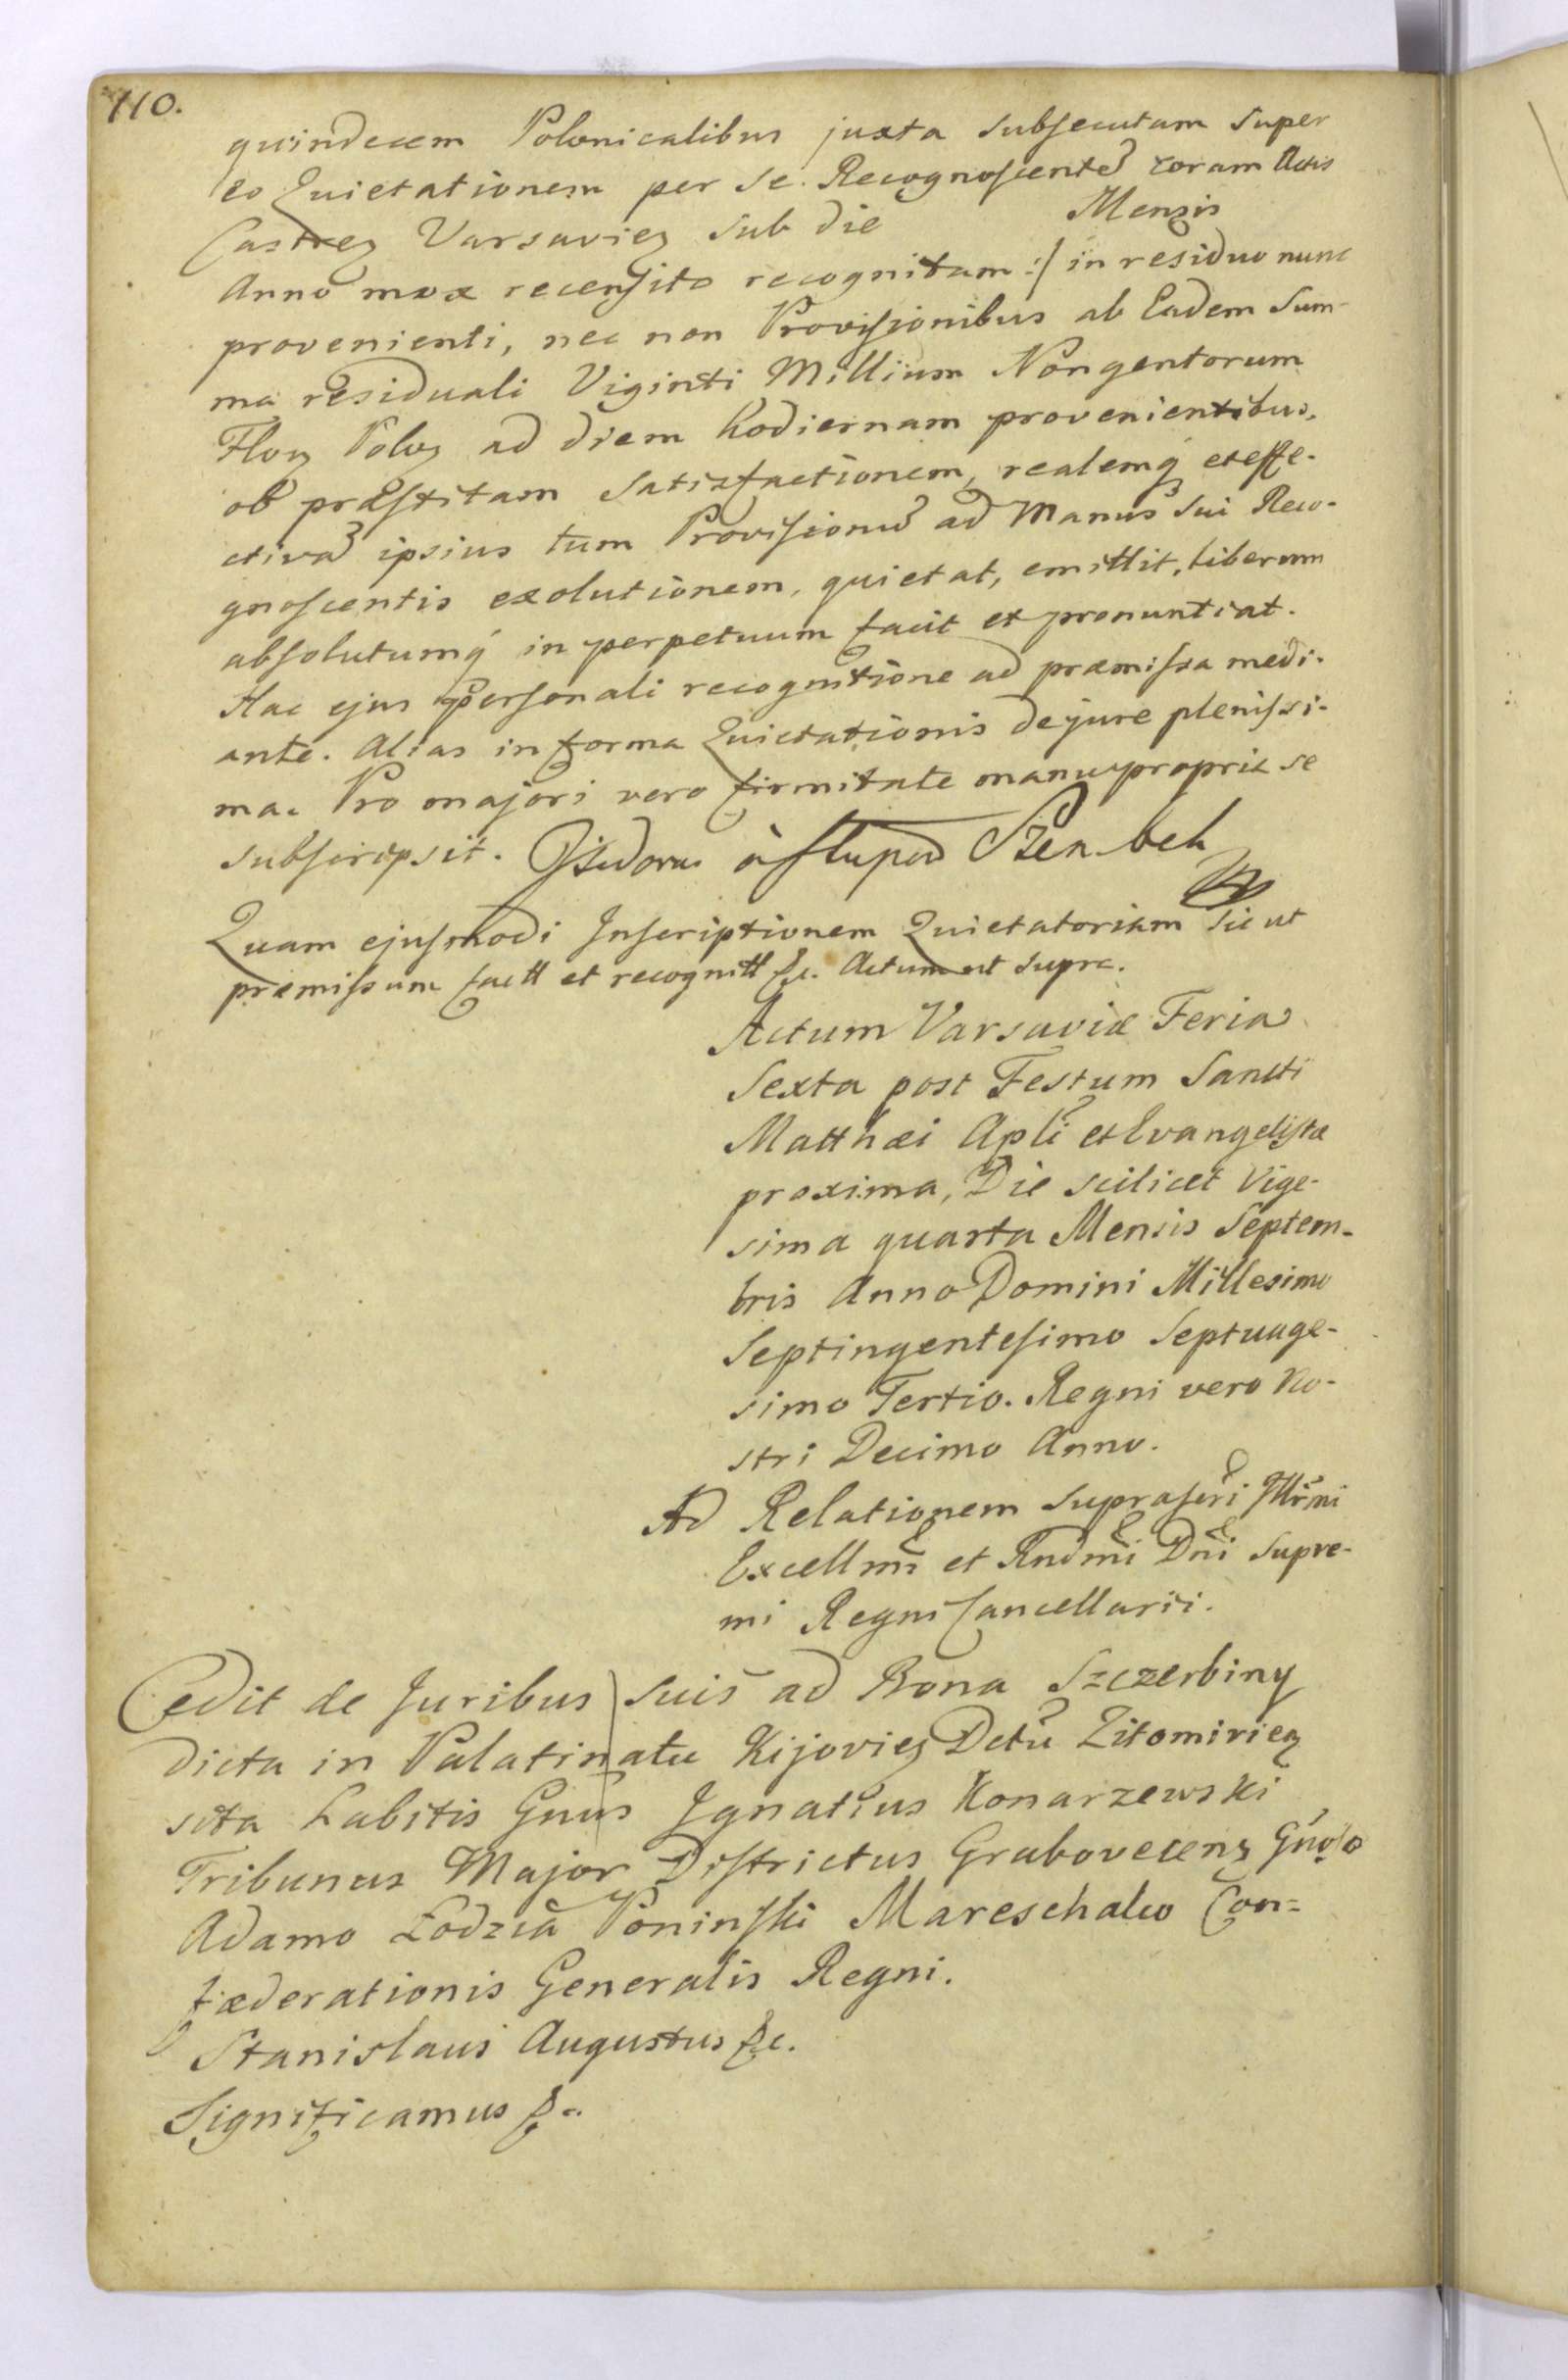 110.
quindecem Polonicalibus juxta subsecutam super
eo Quietationem per se Recognoscente coram Actis
Castreɳ Varsavieɳ sub die Mensis
Anno mox recensito recognitam :/ in residuo nunc
provenienti, nec non Provisionibus ab Eadem Sum-
ma residuali Viginti Millium Nongentorum
Floɳ Poloɳ ad diem hodiernam provenientibus,
ob præstitam satisfactionem, realemq́ et effe-
ctivã ipsius tum Provisionũ ad Manus sui Reco-
gnoscentis exolutionem, quietat, emittit, liberum
absolutumq́ in perpetuum facit et pronuntiat.
Hac ejus personali recognitione ad præmissa medi-
ante. Alias in forma Quietationis de jure plenissi-
ma. Pro majori vero firmitate manu propria se
subscripsit. Isidorus à Słupow Szembek
Quam ejusmodi Inscriptionem Quietatoriam sic ut
præmissum factt et recognitt &c. Actum ut supra.
Actum Varsaviæ Feria
Sexta post Festum Sancti
Matthæi Apli et Evangelistæ
proxima, Die scilicet Vige-
sima quarta Mensis Septem-
bris Anno Domini Millesimo
Septingentesimo Septuage-
simo Tertio. Regni vero No-
stri Decimo Anno.
Ad Relationem suprascri Illrmi
Excellmi et Rndmi Dni Supre-
mi Regni Cancellarii.
Cedit de Juribus suis ad Bona Szczerbiny
dicta in Palatinatu Kijovieɳ Dctũ Zitomirieɳ
sita habitis Gnus Ignatius Konarzewski
Tribunus Major Districtus Grabovecenɳ Gnoso
Adamo Łodzia Poninski Mareschalco Con=
fæderationis Generalis Regni.
Stanislaus Augustus &c.
Significamus &c.